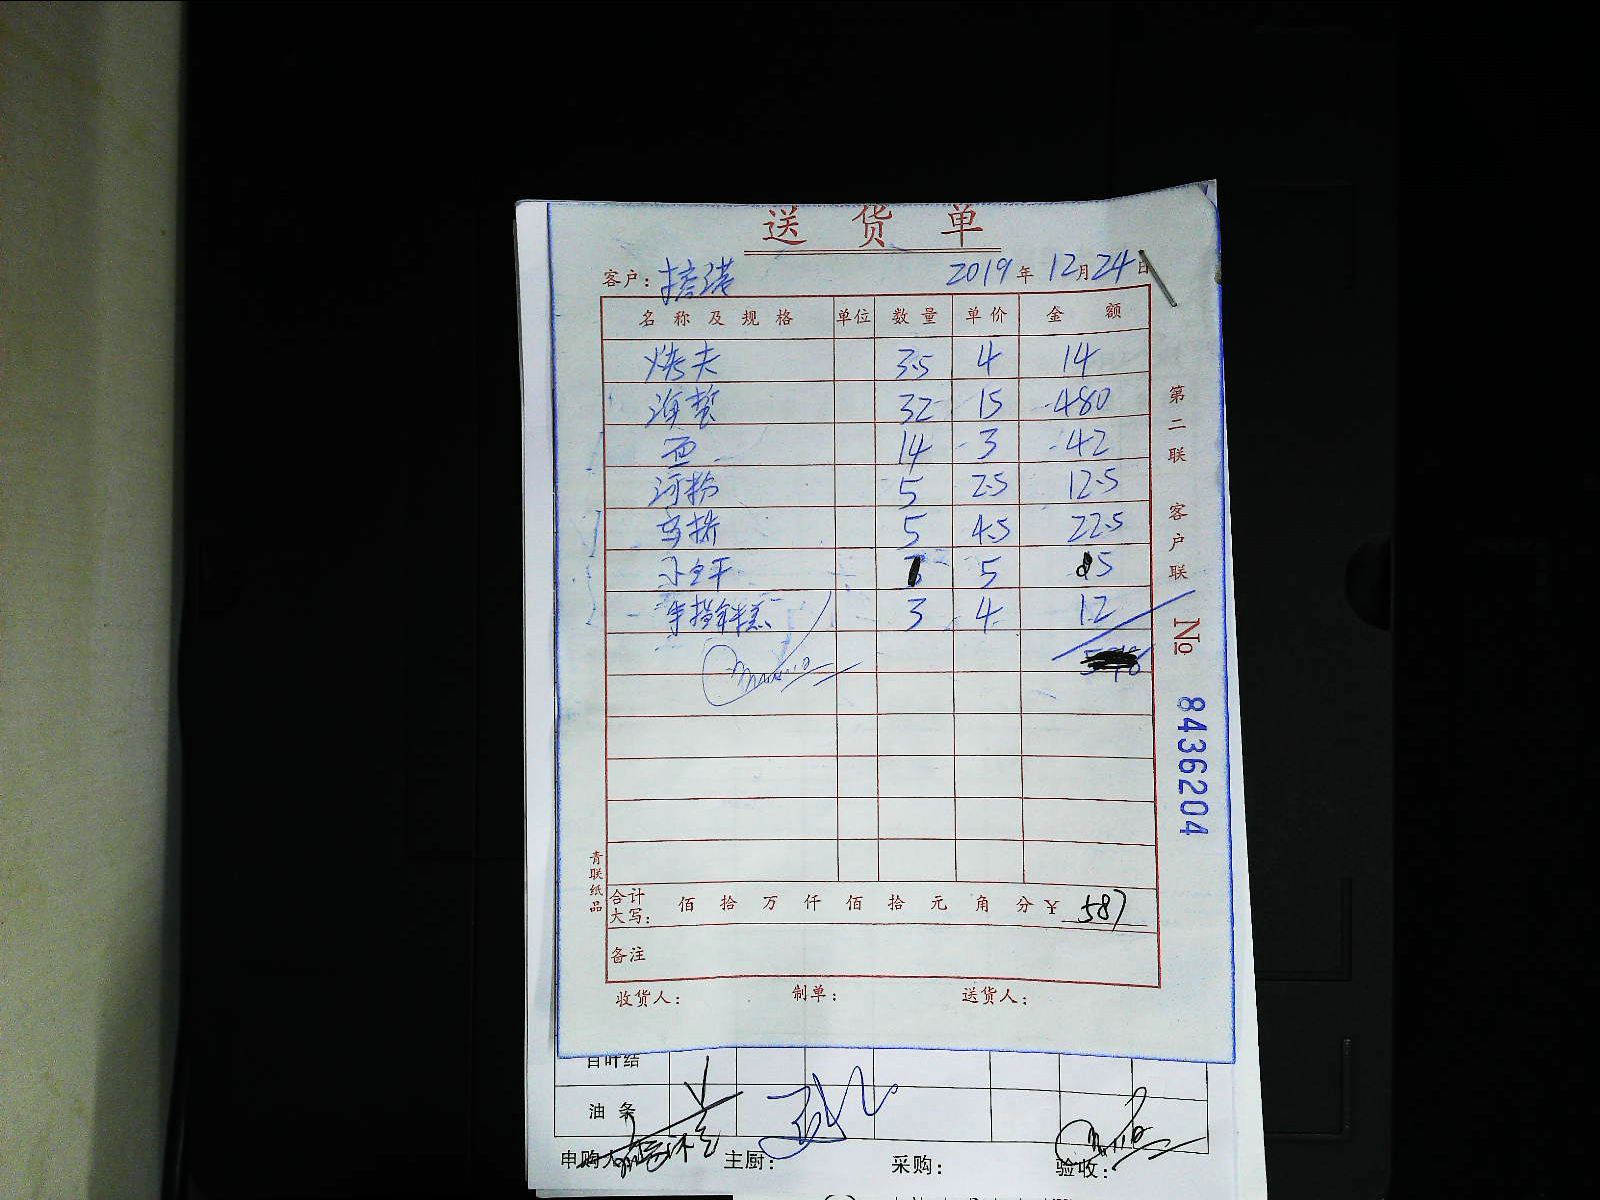 送货单
客户: 2019年12月24日
名称及规格 单位 数量 单价 金额
烤夫 3.5 4 14
海蜇 32 15 480
面 14 3 42
河粉 5 2.5 12.5
5 4.5 22.5
5 5
手指年糕 3 4 12
合计大写: 佰 拾 万 仟 佰 拾 元 角 分 ¥ 587
备注
收货人: 制单: 送货人:
第二联 客户联
No 8436204
青联纸品
百叶结
油条
申购人 主厨: 采购: 验收: